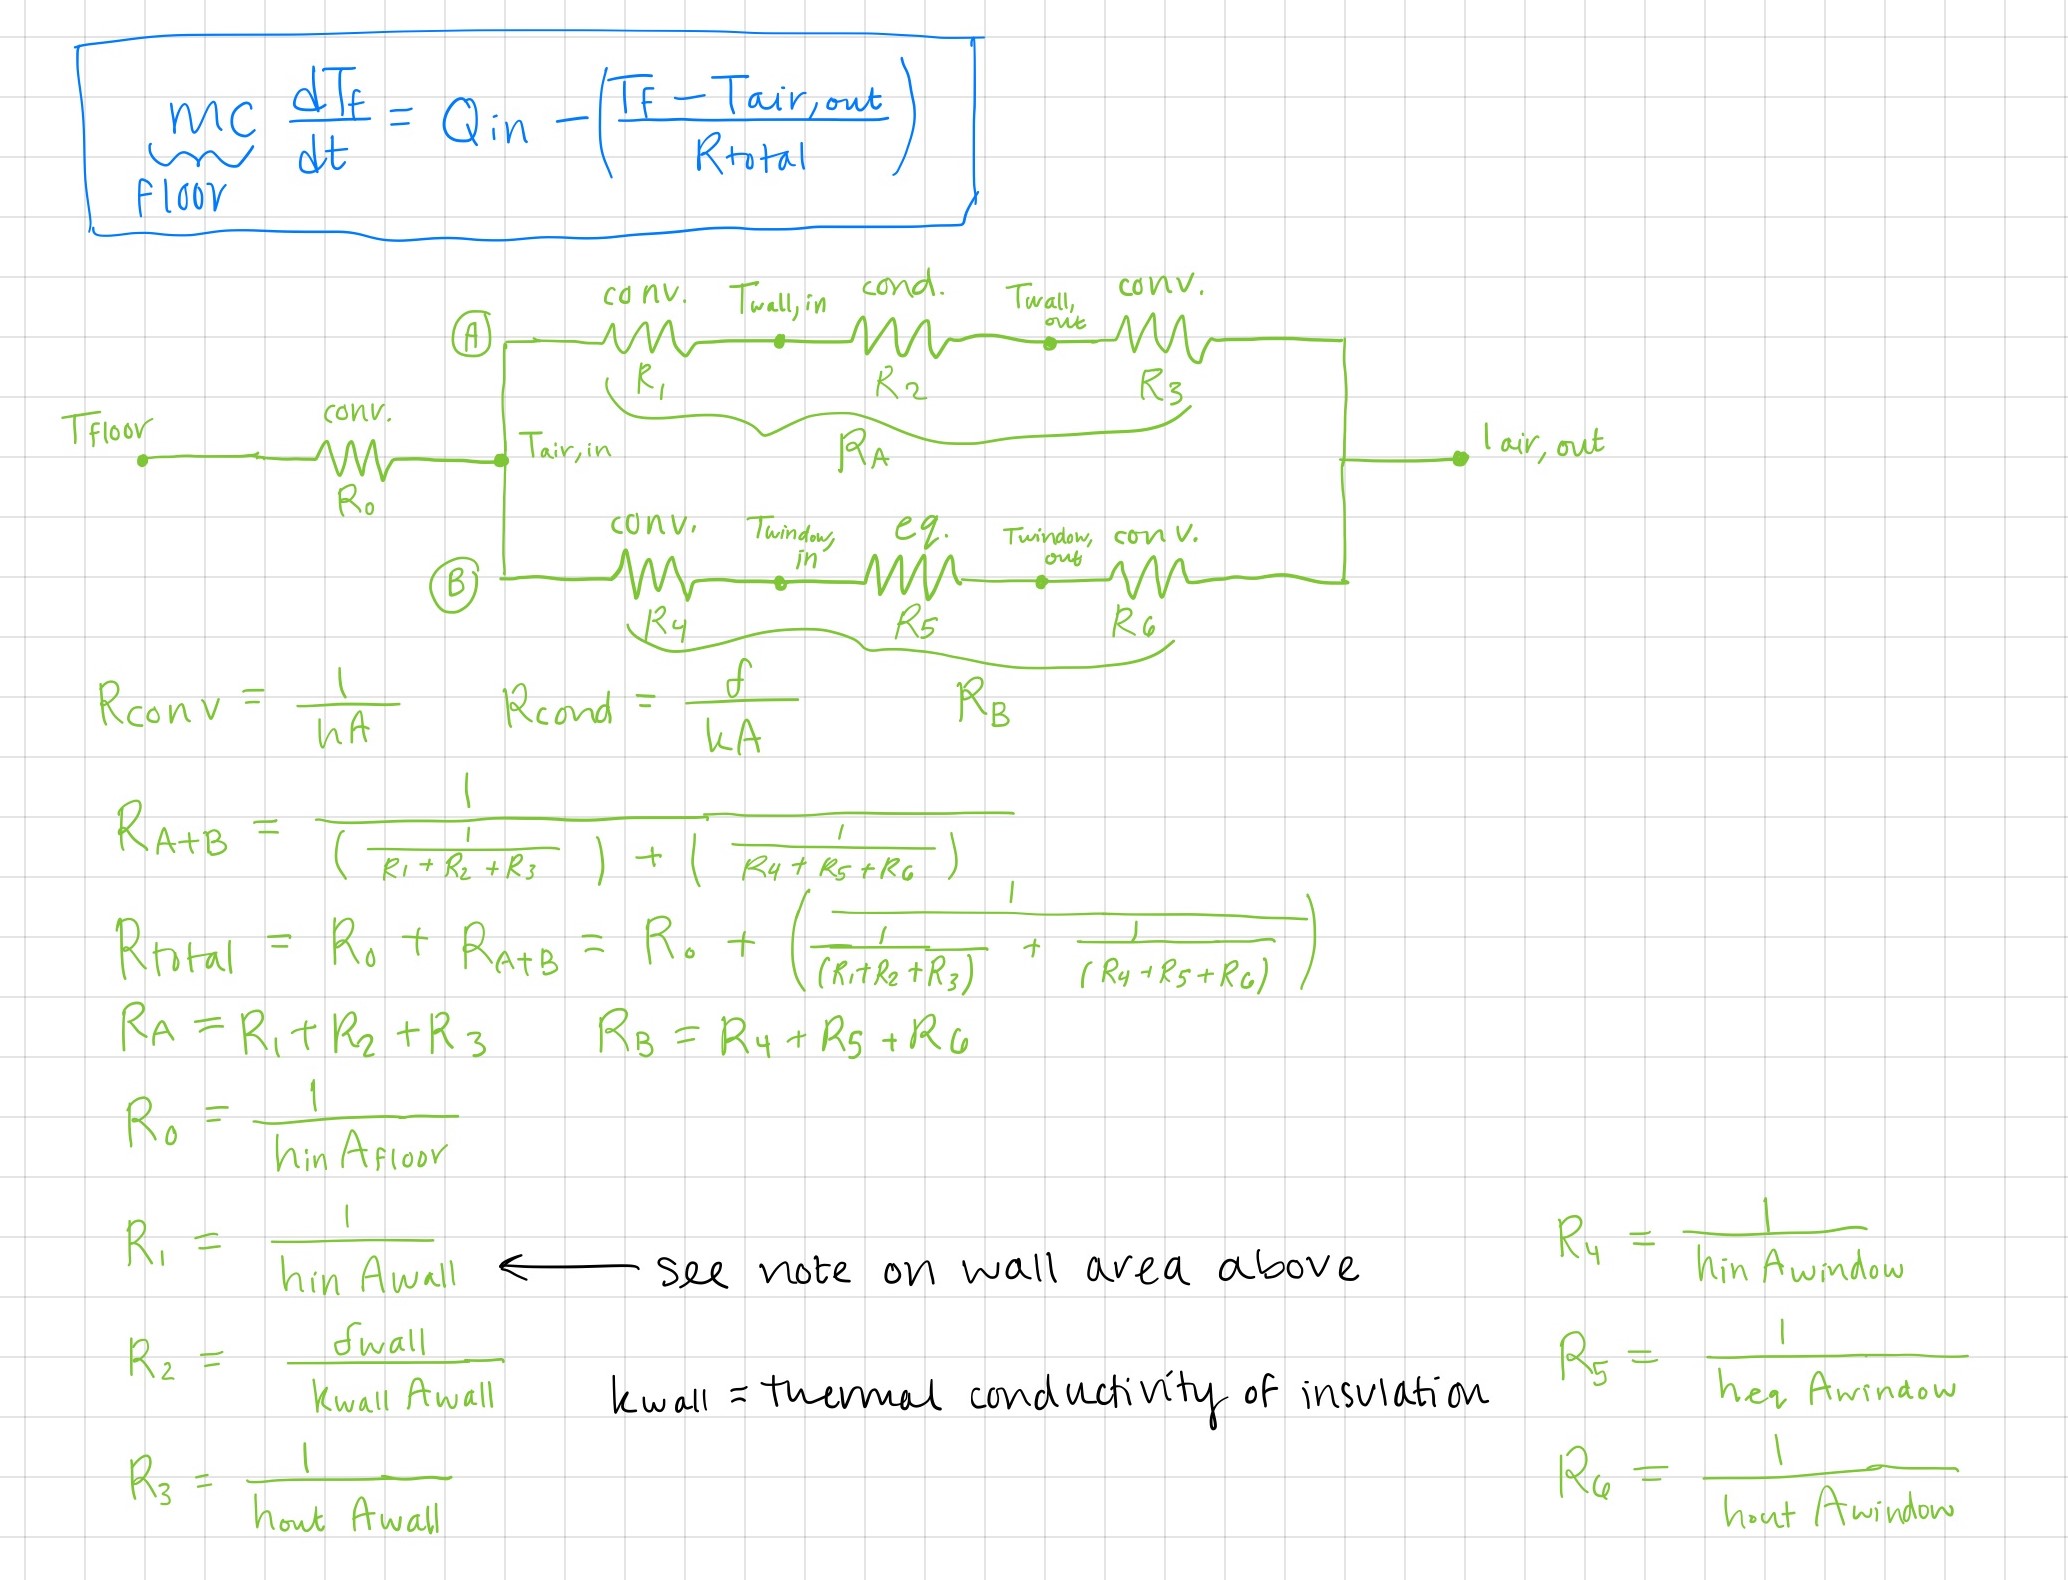 mc dTF/dt = Qin - (TF - Tair,out / Rtotal)
floor
conv. Twall,in cond. Twall,out conv.
A
R1 R2 R3
Tfloor conv. Tair,in RA Tair,out
R0
conv. Twindow,in eq. Twindow,out conv.
B
R4 R5 R6
Rconv = 1/hA Rcond = δ/kA RB
RA+B = 1 / (1/R1 + R2 + R3) + (1/R4 + R5 + R6)
Rtotal = R0 + RA+B = R0 + (1 / 1/(R1+R2+R3) + 1/(R4+R5+R6))
RA = R1 + R2 + R3 RB = R4 + R5 + R6
R0 = 1/hin Afloor
R1 = 1/hin Awall ← see note on wall area above R4 = 1/hin Awindow
R2 = δwall/kwall Awall kwall = thermal conductivity of insulation R5 = 1/heq Awindow
R3 = 1/hout Awall R6 = 1/hout Awindow